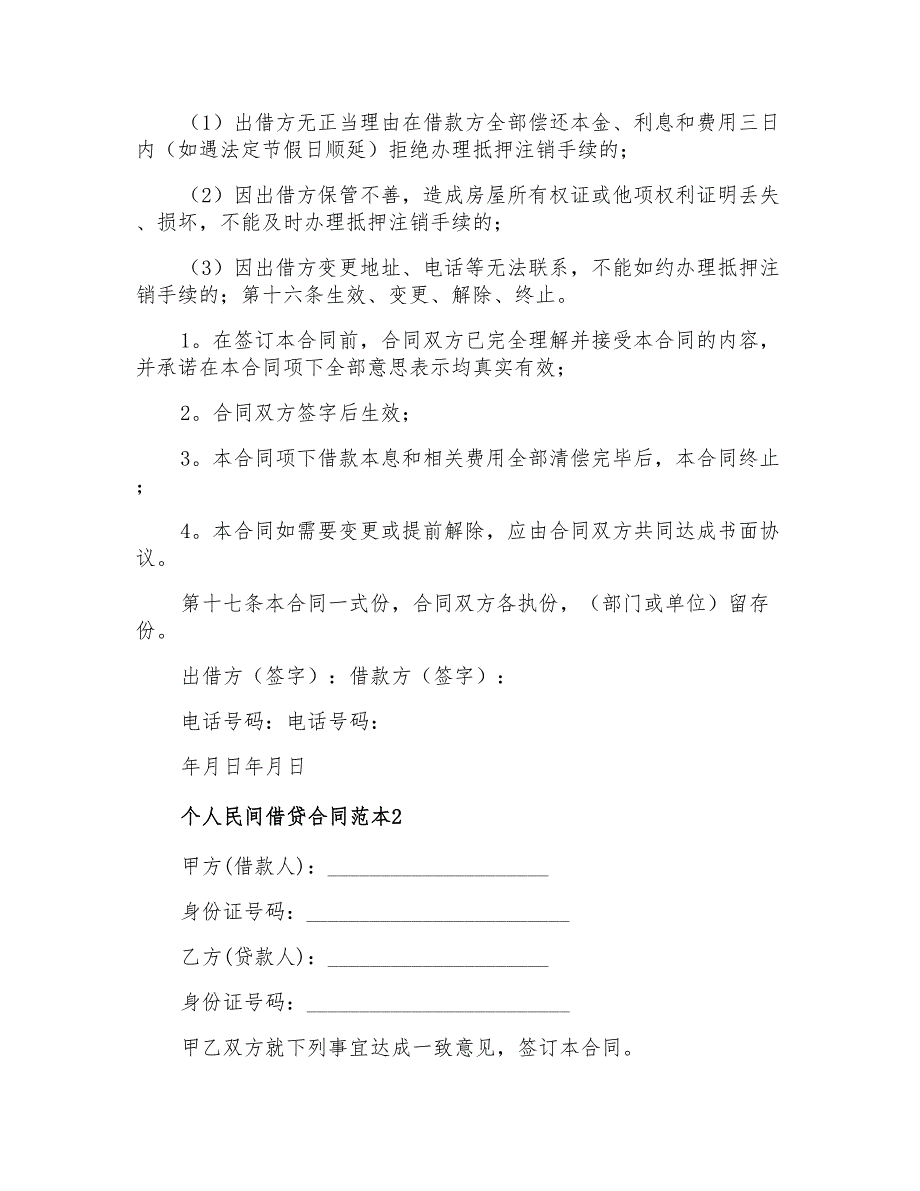 （1）出借方无正当理由在借款方全部偿还本金、利息和费用三日
内（如遇法定节假日顺延）拒绝办理抵押注销手续的；
（2）因出借方保管不善，造成房屋所有权证或他项权利证明丢失
、损坏，不能及时办理抵押注销手续的；
（3）因出借方变更地址、电话等无法联系，不能如约办理抵押注
销手续的；第十六条生效、变更、解除、终止。
1。在签订本合同前，合同双方已完全理解并接受本合同的内容，
并承诺在本合同项下全部意思表示均真实有效；
2。合同双方签字后生效；
3。本合同项下借款本息和相关费用全部清偿完毕后，本合同终止
；
4。本合同如需要变更或提前解除，应由合同双方共同达成书面协
议。
第十七条本合同一式份，合同双方各执份，（部门或单位）留存
份。
出借方（签字）：借款方（签字）：
电话号码：电话号码：
年月日年月日
个人民间借贷合同范本2
甲方(借款人)：_____________________
身份证号码：_________________________
乙方(贷款人)：_____________________
身份证号码：_________________________
甲乙双方就下列事宜达成一致意见，签订本合同。